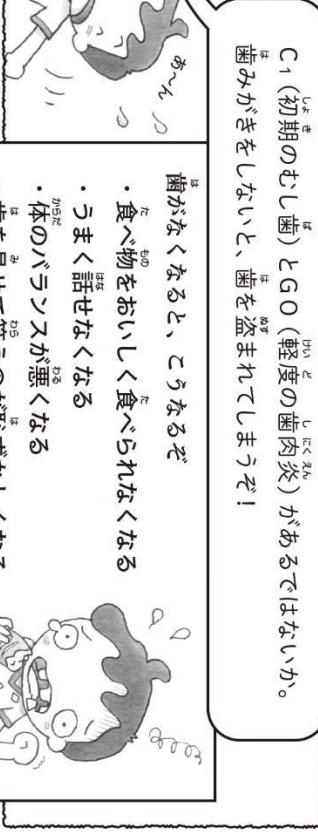 C₁（初期のむし歯）とGO（軽度の歯肉炎）があるではないか。
歯みがきをしないと、歯を盗まれてしまうぞ！
あ〜ん
歯がなくなると、こうなるぞ
・食べ物をおいしく食べられなくなる
・うまく話せなくなる
・体のバランスが悪くなる